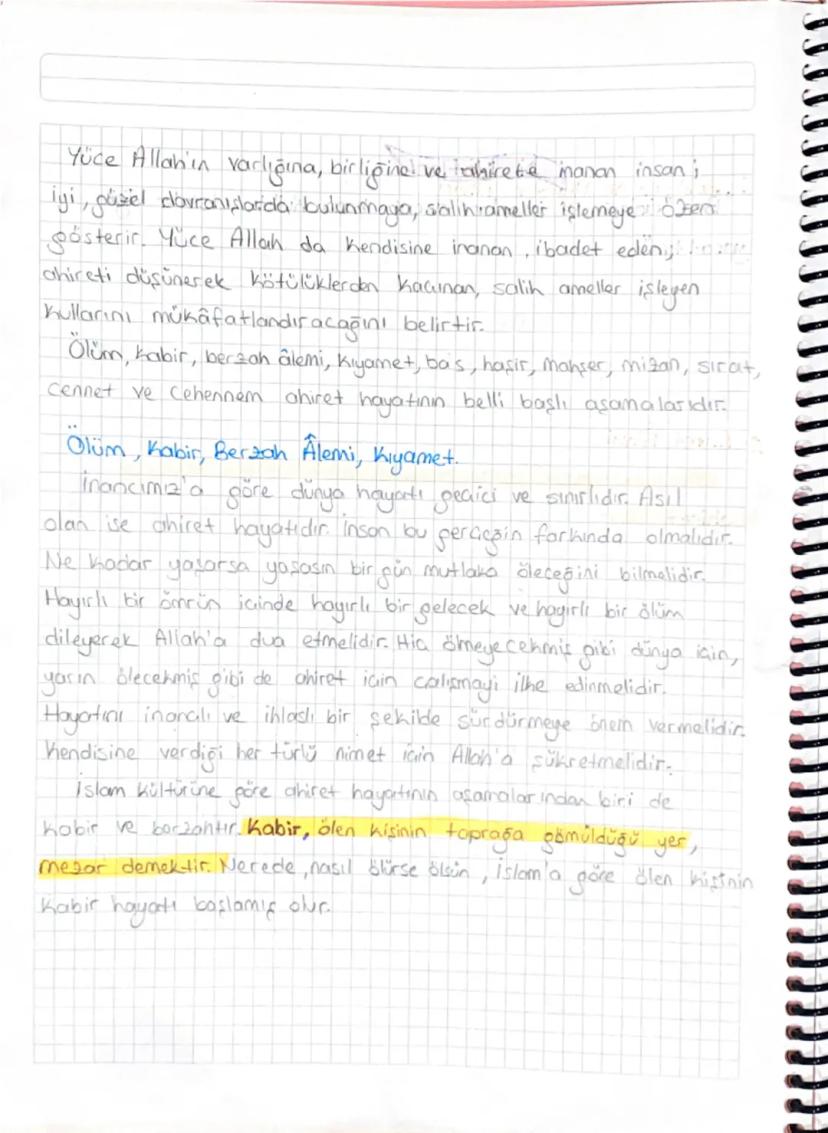 Yüce Allah'ın varlığına, birliğine ve ahirete inanan insan;
iyi, güzel davranışlarda bulunmaya, salih ameller işlemeye özen
gösterir. Yüce Allah da kendisine inanan, ibadet eden,
ahireti düşünerek kötülüklerden kaçınan, salih ameller işleyen
kullarını mükâfatlandıracağını belirtir.
Ölüm, kabir, berzah âlemi, kıyamet, ba's, haşir, mahşer, mizan, sırat,
cennet ve cehennem ahiret hayatının belli başlı aşamalarıdır.
Ölüm, Kabir, Berzah Âlemi, Kıyamet.
İnancımız'a göre dünya hayatı geçici ve sınırlıdır. Asıl
olan ise ahiret hayatıdır. İnsan bu gerçeğin farkında olmalıdır.
Ne kadar yaşarsa yaşasın bir gün mutlaka öleceğini bilmelidir.
Hayırlı bir ömrün içinde hayırlı bir gelecek ve hayırlı bir ölüm
dileyerek Allah'a dua etmelidir. Hiç ölmeyecekmiş gibi dünya için,
yarın ölecekmiş gibi de ahiret için çalışmayı ilke edinmelidir.
Hayatını inançlı ve ihlaslı bir şekilde sürdürmeye önem vermelidir.
Kendisine verdiği her türlü nimet için Allah'a şükretmelidir.
İslam kültürüne göre ahiret hayatının aşamalarından biri de
kabir ve barzahtır. Kabir, ölen kişinin toprağa gömüldüğü yer,
mezar demektir. Nerede, nasıl ölürse ölsün, İslam'a göre ölen kişinin
kabir hayatı başlamış olur.